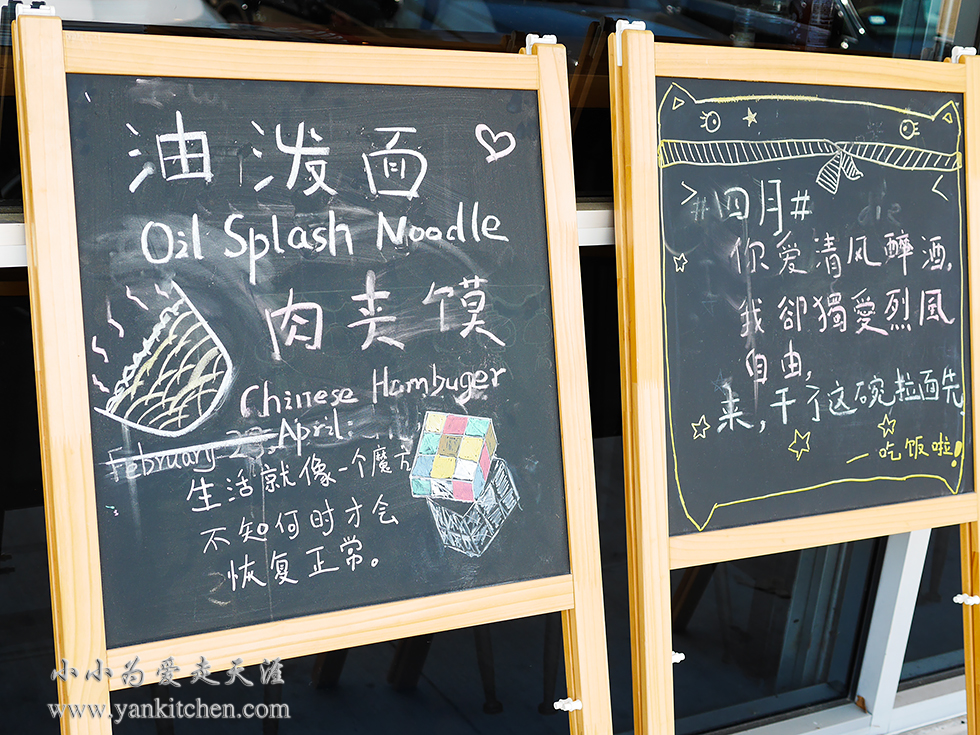 油泼面
Oil Splash Noodle
肉夹馍
Chinese Hambuger
February 29, April:
生活就像一个魔方
不知何时才会
恢复正常。
#四月#
你爱清风醉酒,
我卻獨愛烈風
自由,
来,干了这碗拉面先
一吃饭啦!
小小为爱走天涯
www.yankitchen.com